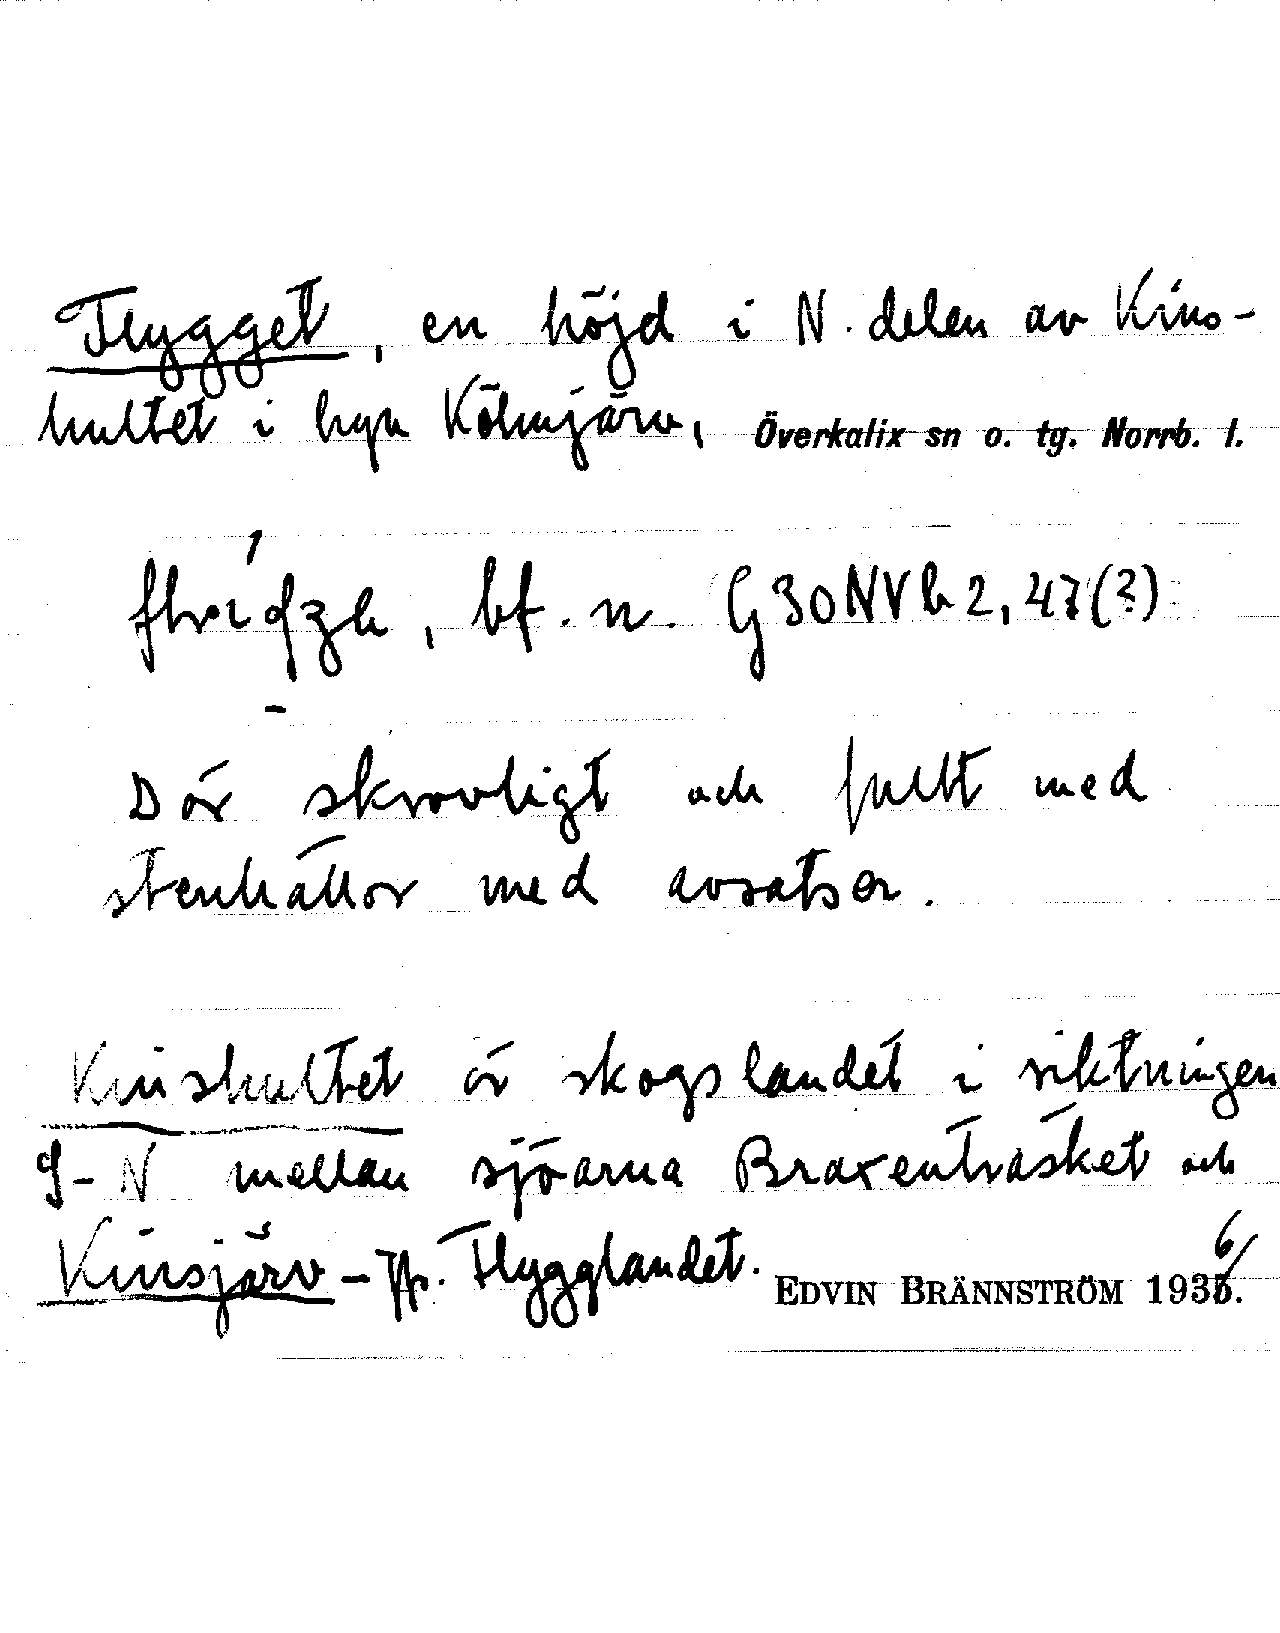 Flygget, en höjd i N. delen av Kins-
hultet i byn Kölmjärv, Överkalix sn o. tg. Norrb. l.
bf. n. G30NVh2,47(?)
D är skrovligt och fullt med
stenhällor med avsatser.
Kinshultet är skogslandet i riktningen
S-N mellan sjöarna Braxenträsket och
Kinsjärv - Jfr. Flygglandet. EDVIN BRÄNNSTRÖM 1936.